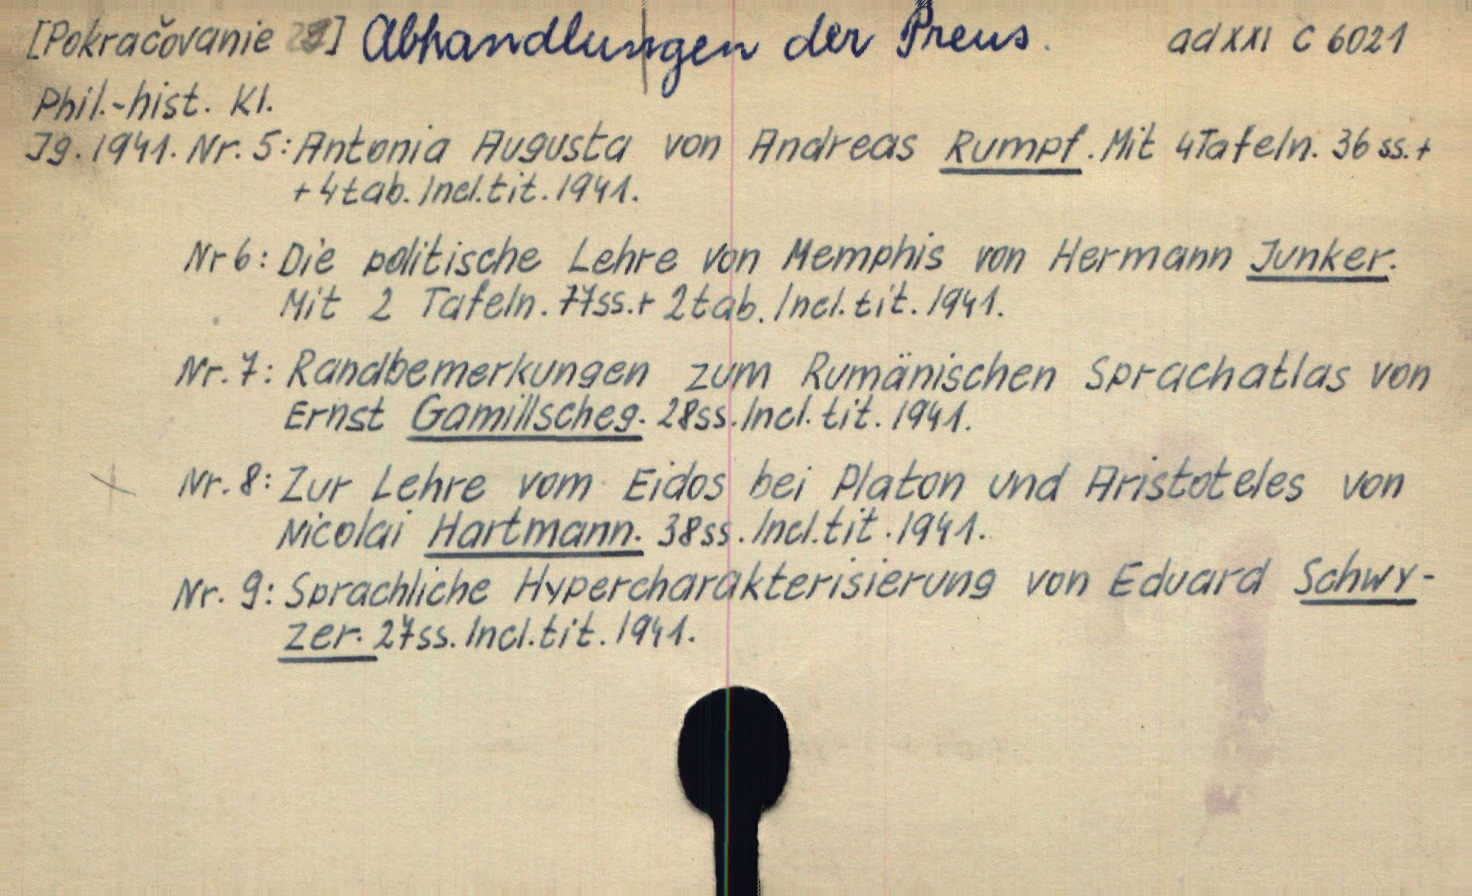 [Pokračovanie] Abhandlungen der Preus. ad XXI C 6021
Phil.-hist. Kl.
Jg. 1941. Nr. 5: Antonia Augusta von Andreas Rumpf. Mit 4 Tafeln. 36 ss. +
+ 4 tab. Incl. tit. 1941.
Nr 6: Die politische Lehre von Memphis von Hermann Junker.
Mit 2 Tafeln. 77 ss. + 2 tab. Incl. tit. 1941.
Nr. 7: Randbemerkungen zum Rumänischen Sprachatlas von
Ernst Gamillscheg. 28 ss. Incl. tit. 1941.
Nr. 8: Zur Lehre vom Eidos bei Platon und Aristoteles von
Nicolai Hartmann. 38 ss. Incl. tit. 1941.
Nr. 9: Sprachliche Hypercharakterisierung von Eduard Schwy-
zer. 27 ss. Incl. tit. 1941.